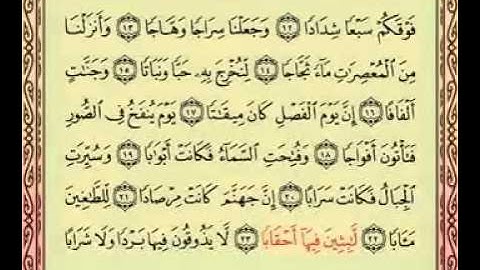 فَوْقَكُمْ سَبْعًا شِدَادًا ١٢ وَجَعَلْنَا سِرَاجًا وَهَّاجًا ١٣ وَأَنزَلْنَا
مِنَ الْمُعْصِرَٰتِ مَآءً ثَجَّاجًا ١٤ لِّنُخْرِجَ بِهِۦ حَبًّا وَنَبَاتًا ١٥ وَجَنَّٰتٍ
أَلْفَافًا ١٦ إِنَّ يَوْمَ الْفَصْلِ كَانَ مِيقَٰتًا ١٧ يَوْمَ يُنفَخُ فِي الصُّورِ
فَتَأْتُونَ أَفْوَاجًا ١٨ وَفُتِحَتِ السَّمَآءُ فَكَانَتْ أَبْوَٰبًا ١٩ وَسُيِّرَتِ
الْجِبَالُ فَكَانَتْ سَرَابًا ٢٠ إِنَّ جَهَنَّمَ كَانَتْ مِرْصَادًا ٢١ لِّلطَّٰغِينَ
مَـَٔابًا ٢٢ لَّٰبِثِينَ فِيهَآ أَحْقَابًا ٢٣ لَّا يَذُوقُونَ فِيهَا بَرْدًا وَلَا شَرَابًا